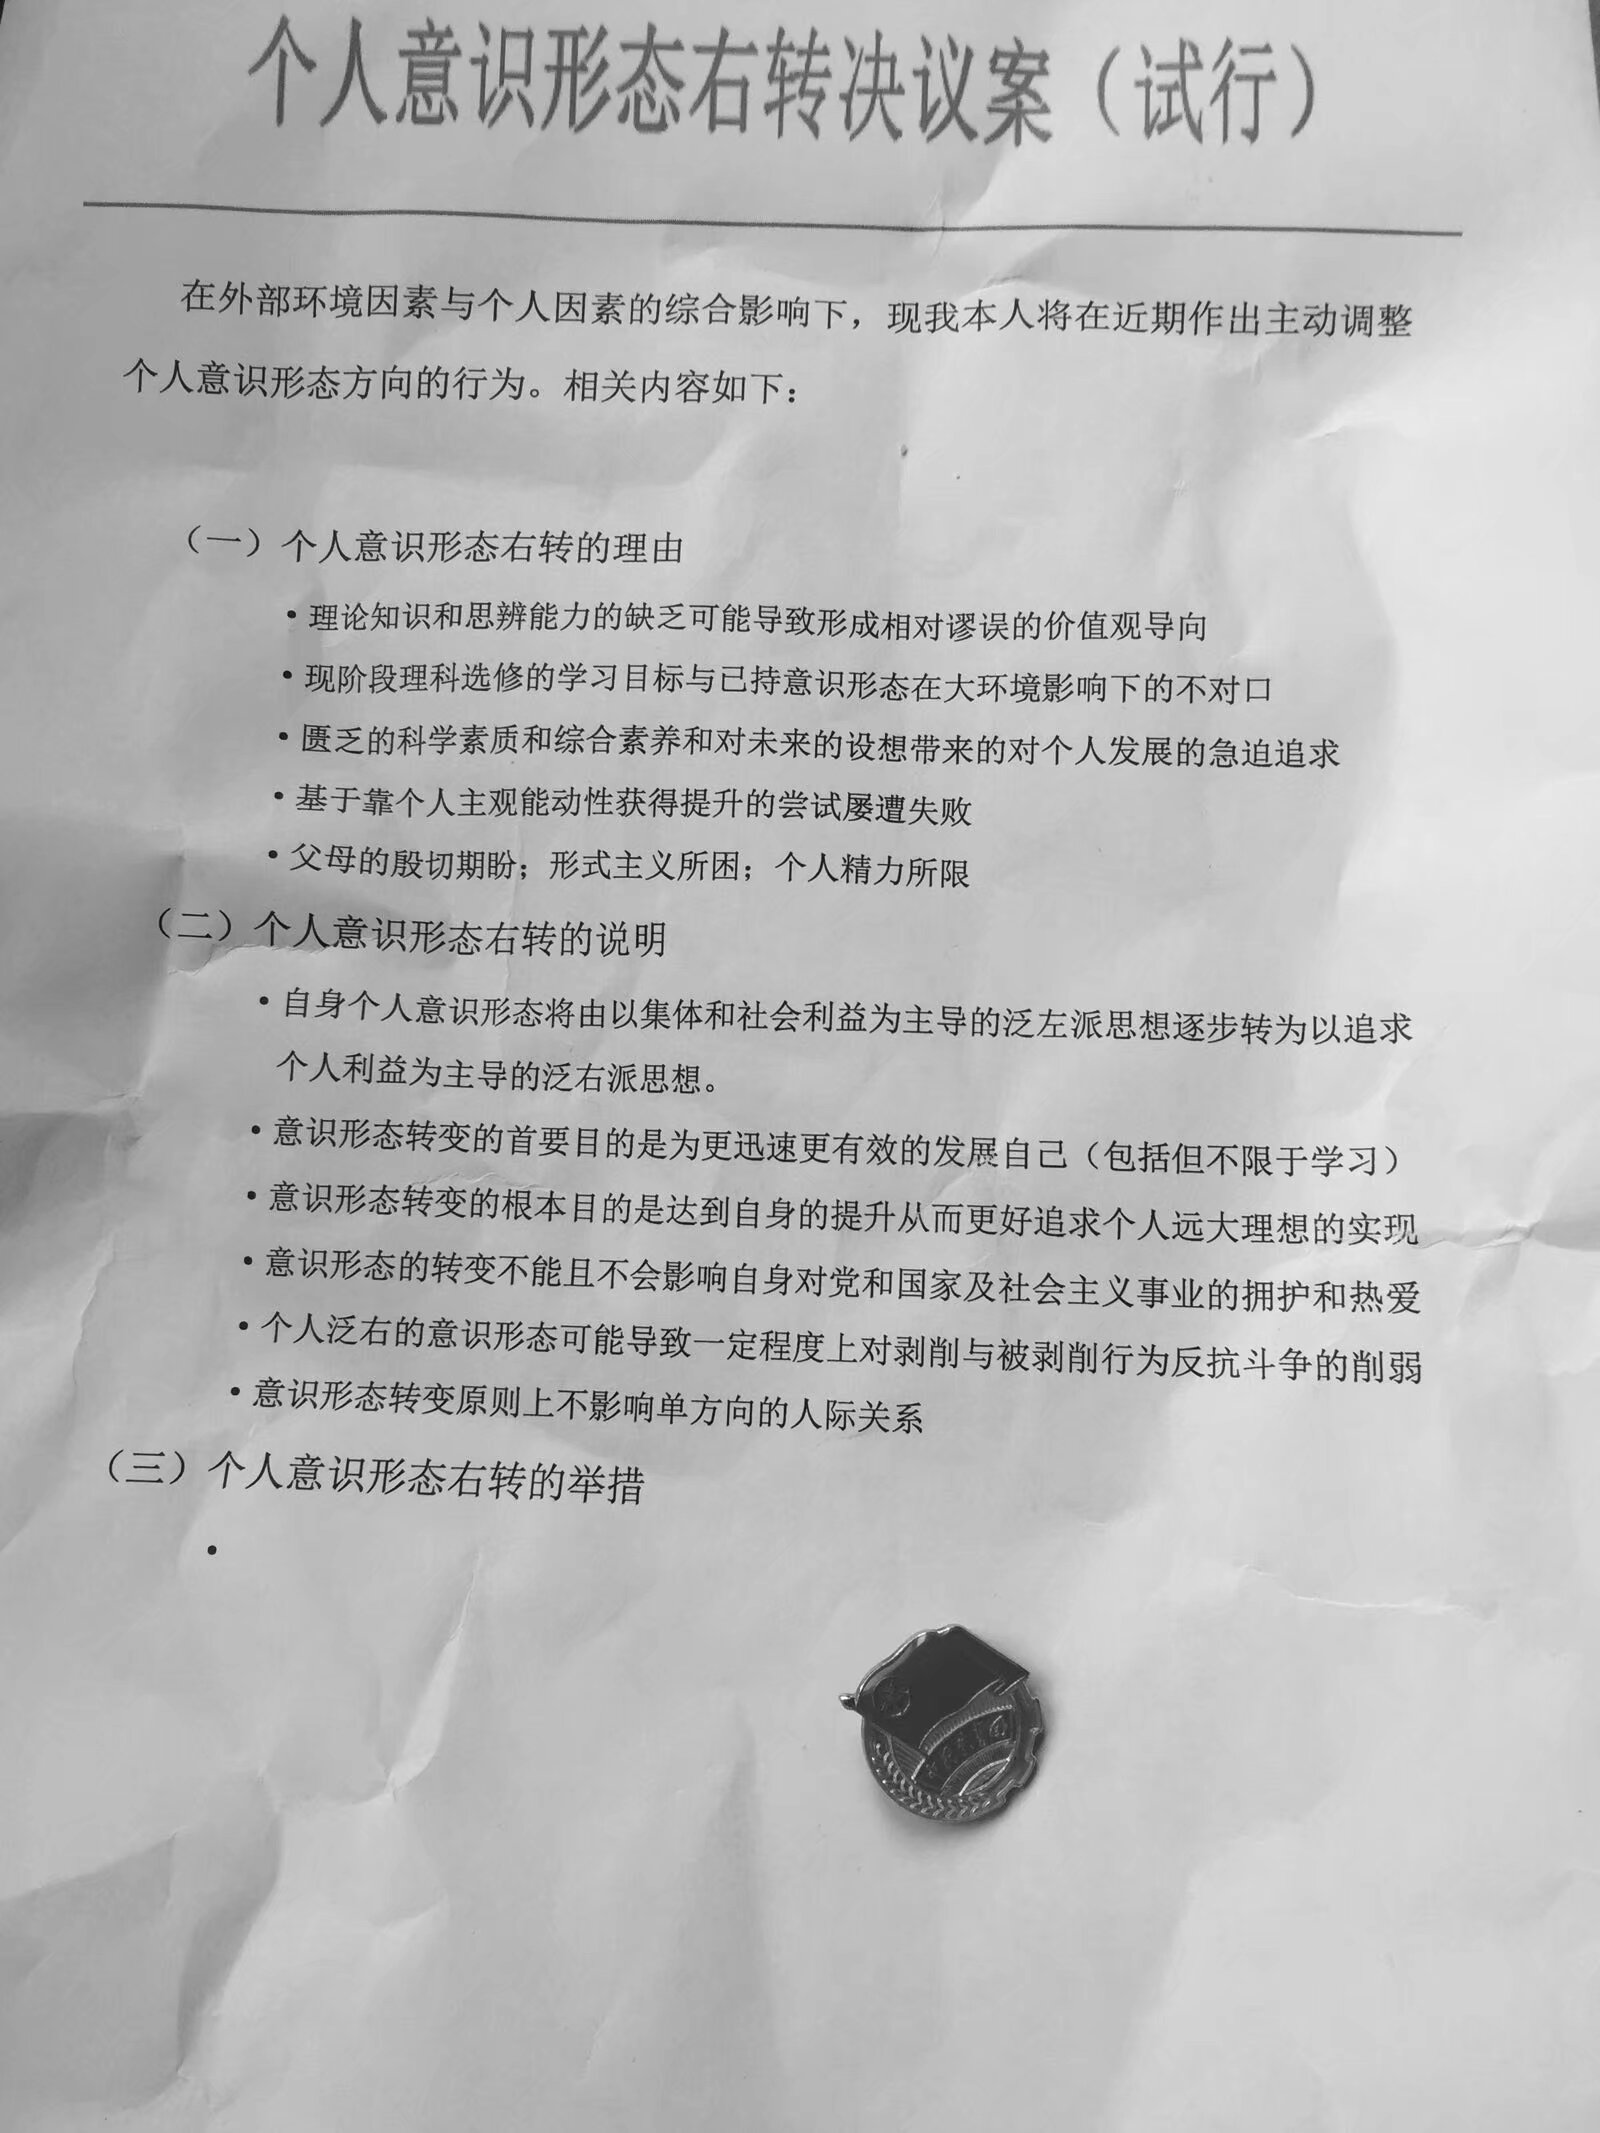 个人意识形态右转决议案（试行）
在外部环境因素与个人因素的综合影响下，现我本人将在近期作出主动调整
个人意识形态方向的行为。相关内容如下：
（一）个人意识形态右转的理由
•理论知识和思辨能力的缺乏可能导致形成相对谬误的价值观导向
•现阶段理科选修的学习目标与已持意识形态在大环境影响下的不对口
•匮乏的科学素质和综合素养和对未来的设想带来的对个人发展的急迫追求
•基于靠个人主观能动性获得提升的尝试屡遭失败
•父母的殷切期盼；形式主义所困；个人精力所限
（二）个人意识形态右转的说明
•自身个人意识形态将由以集体和社会利益为主导的泛左派思想逐步转为以追求
个人利益为主导的泛右派思想。
•意识形态转变的首要目的是为更迅速更有效的发展自己（包括但不限于学习）
•意识形态转变的根本目的是达到自身的提升从而更好追求个人远大理想的实现
•意识形态的转变不能且不会影响自身对党和国家及社会主义事业的拥护和热爱
•个人泛右的意识形态可能导致一定程度上对剥削与被剥削行为反抗斗争的削弱
•意识形态转变原则上不影响单方向的人际关系
（三）个人意识形态右转的举措
•